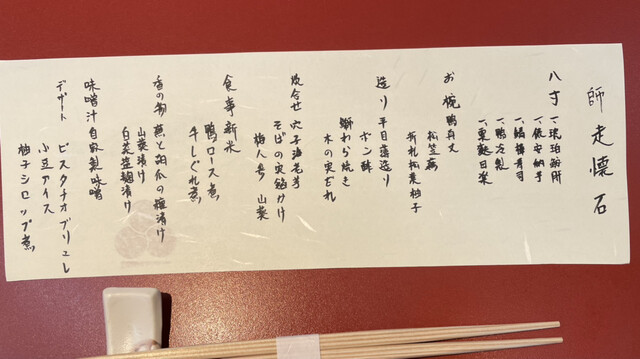 師走懐石
八寸
一、琥珀胡桃
一、
一、
一、鴨
一、
お椀 鴨真丈
松笠
折札松葉柚子
造り 平目薄造り
ポン酢
鰤わら焼き
木の実だれ
炊合せ 穴子海老芋
そばの実餡かけ
梅人参 山菜
食事 新米
鴨ロース煮
牛しぐれ煮
香の物 蕪と胡瓜の糠漬け
山菜漬け
白菜塩麹漬け
味噌汁 自家製味噌
デザート ピスタチオブリュレ
小豆アイス
柚子シロップ煮